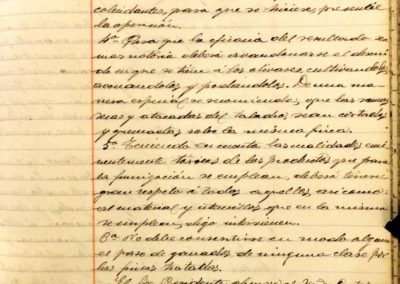 colindantes, para que se hiciese, presencie
la operación.
4ª Para que la eficacia del resultado se
mas notoria deberá abandonarse el descui
do en que se tiene á los olivares, cultivandolos
abonandolos y podandolos. De una ma
nera especial se recomienda, que las ramas
secas y atacadas del taladro, sean cortadas
y quemadas sobre la misma finca.
5ª Teniendo en cuenta las cualidades emi
nentemente tóxicas de los productos que para
la fumigación se emplean, deberá tenerse
gran respeto á todos aquellos, asi como
al material y utensilios que en la misma
se emplean, digo intervienen.
6ª No debe consentirse en modo alguno
el paso de ganados de ninguna clase por
las fincas tratadas.
El Sr. Presidente